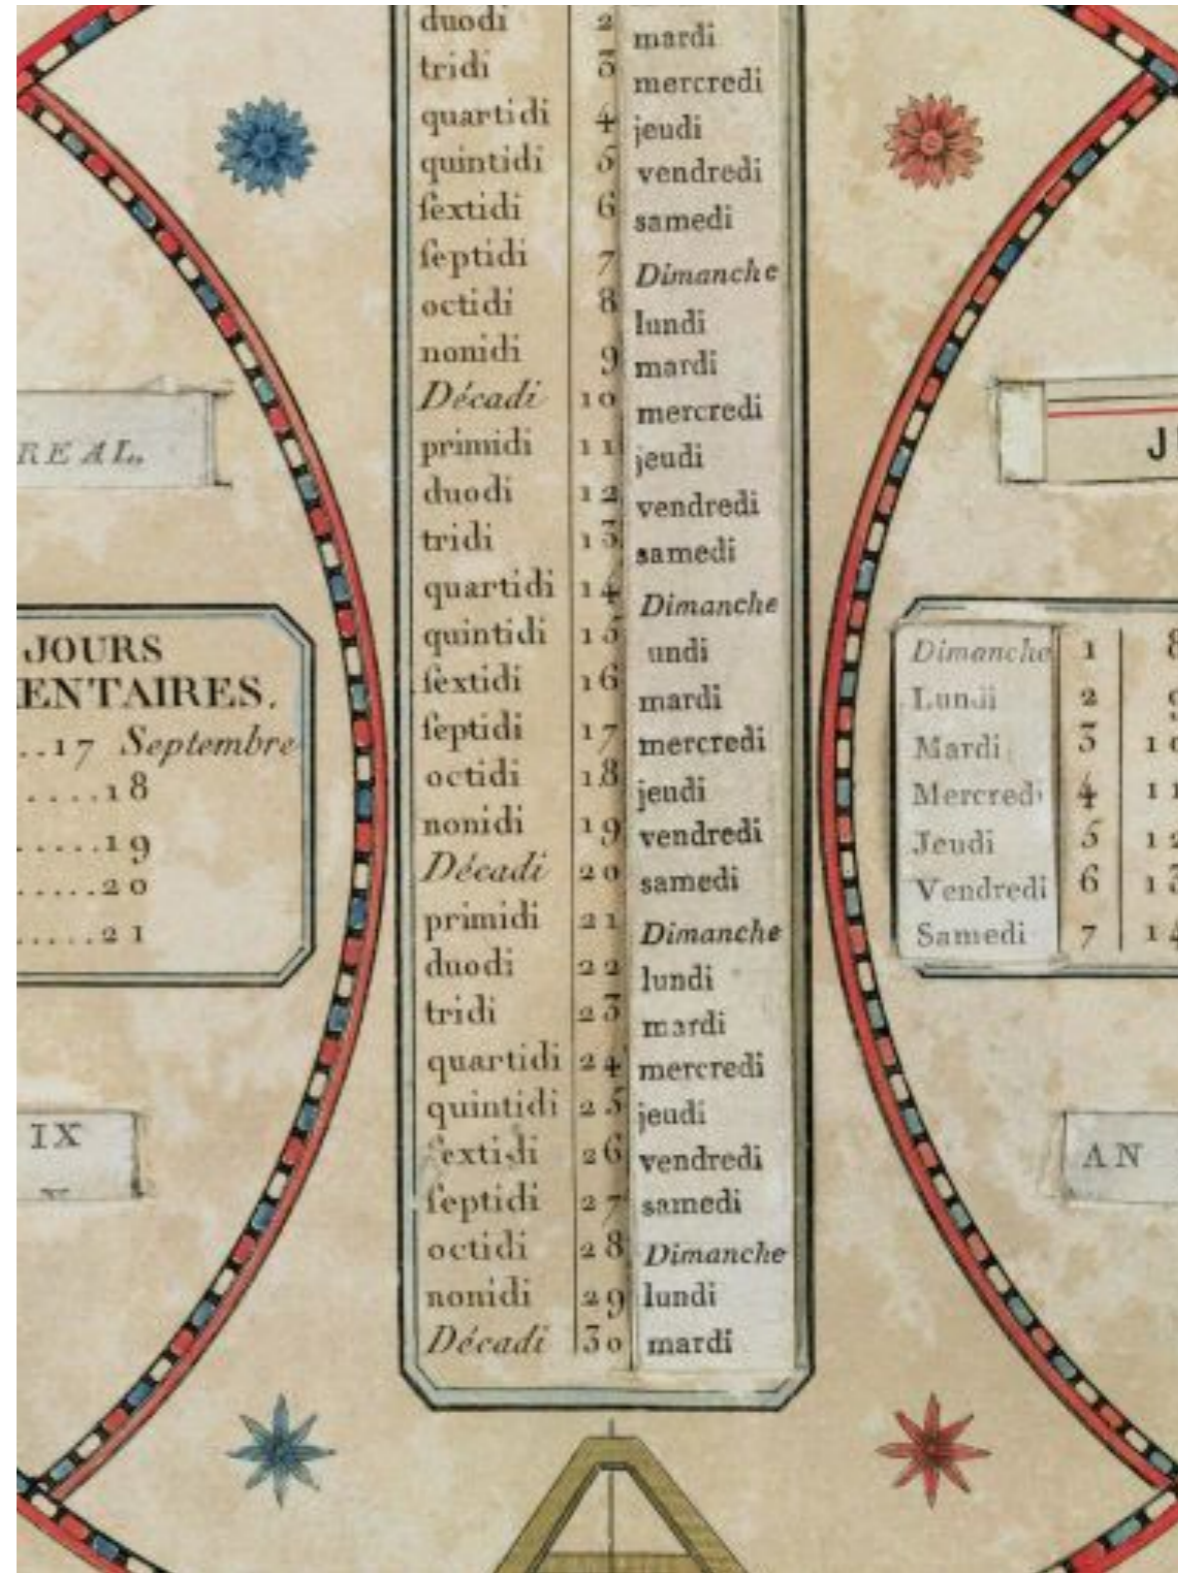 duodi 2 mardi
tridi 3 mercredi
quartidi 4 jeudi
quintidi 5 vendredi
ſextidi 6 samedi
ſeptidi 7 Dimanche
octidi 8 lundi
nonidi 9 mardi
Décadi 10 mercredi
primidi 11 jeudi
duodi 12 vendredi
tridi 13 samedi
quartidi 14 Dimanche
quintidi 15 undi
ſextidi 16 mardi
ſeptidi 17 mercredi
octidi 18 jeudi
nonidi 19 vendredi
Décadi 20 samedi
primidi 21 Dimanche
duodi 22 lundi
tridi 23 mardi
quartidi 24 mercredi
quintidi 25 jeudi
ſextidi 26 vendredi
ſeptidi 27 samedi
octidi 28 Dimanche
nonidi 29 lundi
Décadi 30 mardi
REAL.
JOURS
ENTAIRES.
..17 Septembre
....18
.....19
.....20
.....21
IX
J
Dimanche 1 8
Lundi 2 9
Mardi 3 10
Mercredi 4 11
Jeudi 5 12
Vendredi 6 13
Samedi 7 14
AN